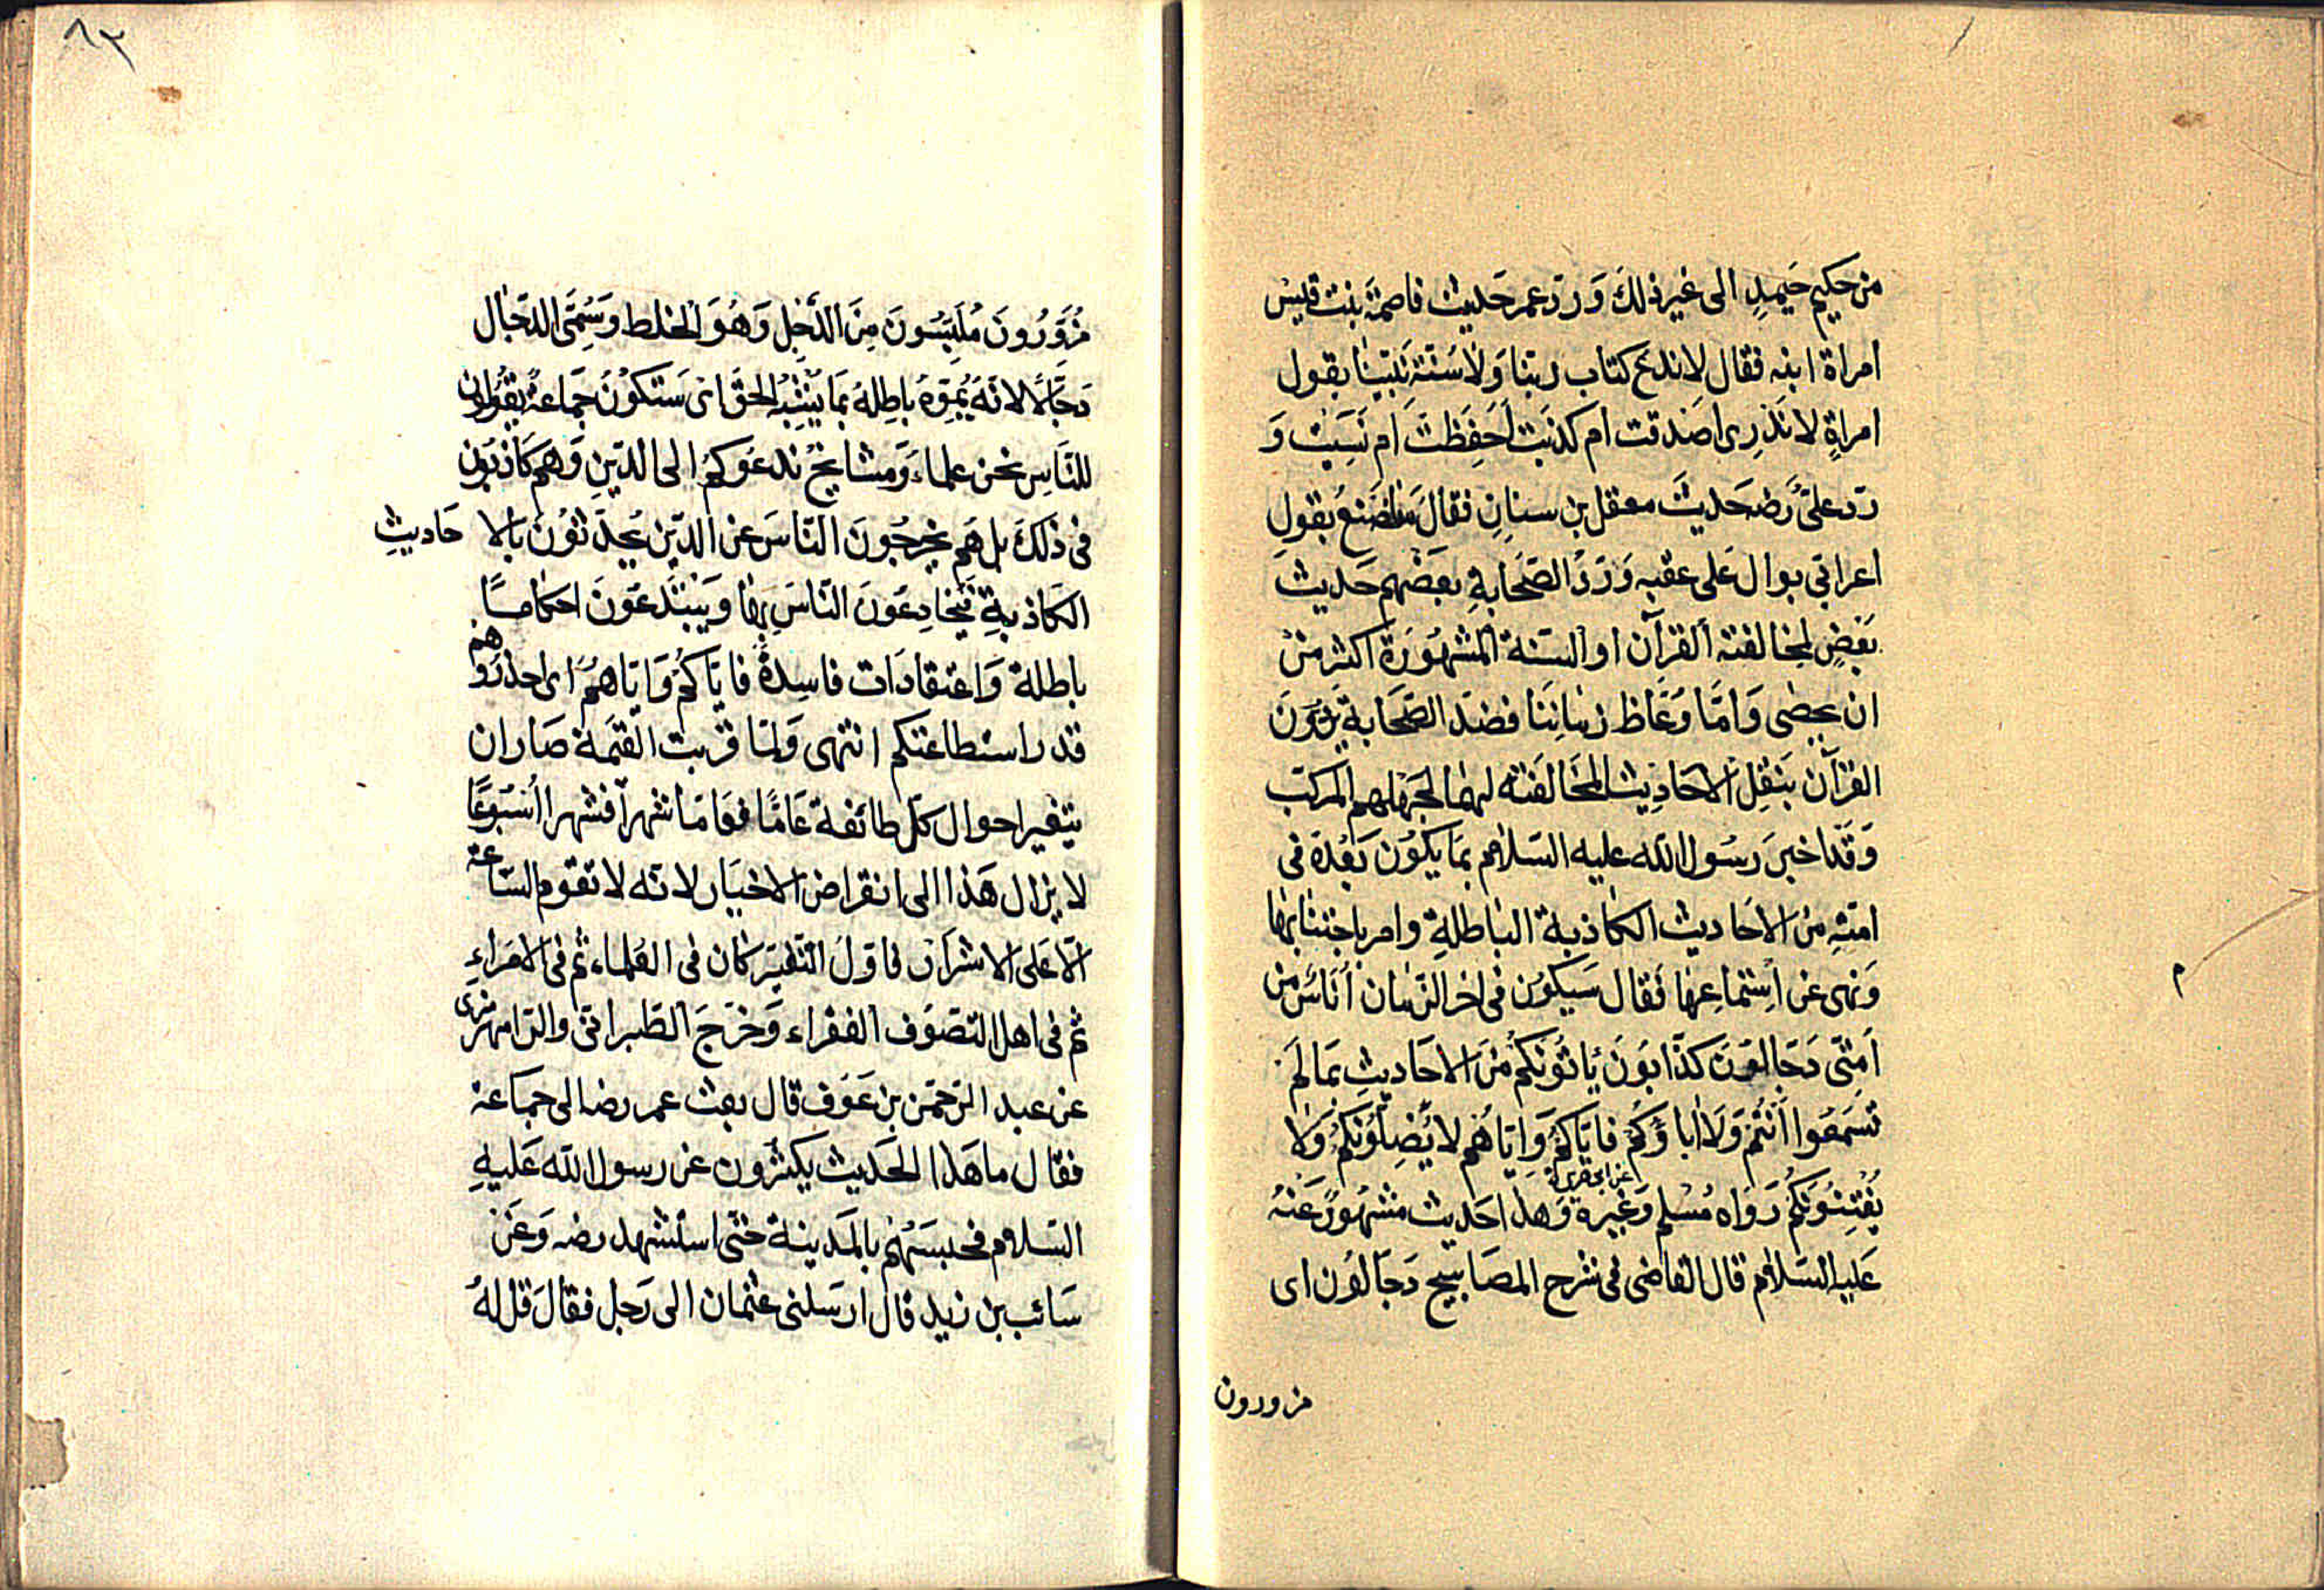 من حكيم حَميدٍ الى غير ذلكَ وَ ردّ عمر حَديث فاصمَة بنت قيس
امراة ابنه فقال لا ندعَ كتاب ربّنا وَلا سُنّة نَبيّنا بقول
امراةٍ لا نَدْرِى اصَدقت ام كذبَت اَحَفِظَتْ اَم نَسِيَت وَ
ردّ علىّ رَضـ حَديثَ معقل بن سنانٍ فقالَ مَا نصْنَعُ بقولِ
اعرابّي بوال عَلى عقبه وَ رَدُّ الصّحَابةِ بعضَهم حَديث
بَعضٍ لمخالفته القرآن او السّنة المشهُورَة اكثر منْ
ان يحصٰى وَامّا وُعّاظ زمَانِنَا فضدّ الصّحَابة يَردّونَ
القرآن بنَقِل الاحَادِيث المخَالفَته لهمَا لجَهلهم المركّب
وَقَد اخبرَ رسُول الله عليه السّلام بمَا يكُون بَعْدَهُ فى
امّتهِ من الاَحَاديث الكَاذبة البَاطلةِ وامر باجتنابهَا
وَنهى عن اسْتماعِهَا فَقال سَيكوُن فى اخر الزّمَان اُنَاسٌ من
اُمّتى دَجّالوُنَ كذّابوُنَ يَاتُوَنكُمْ منَ الاحَاديثِ بمَا لَمْ
تَسمَعُوا اَنتُمْ وَلَا ابَاؤكُمْ فايّاكُمْ وَايّاهُمْ لا يُضِلّوُنكُمْ وَلا
يُفْتِنُوَنكُمْ رَوَاه مُسْلم وَغَيره عن ابى هريرة وَهذا حَديث مشْهُورٌ عَنْهُ
عَليه السّلام قال القاضى فى شرح المصَابيح دَجّالوُن اى
مزورون
٨٣
مُزَوّرُونَ مُلَبّسُونَ مِنَ الدّجَلِ وَهُوَ الخلط وَسُمّىَ الدّجّال
دَجّالًا لانّهُ يُمَوّهُ بَاطِلهُ بمَا يُشْبِهُ الحَقَّ اىْ سَتكوُنُ جَمَاعةٌ يَقُولُون
للنّاسِ نحن علماء وَمشايخُ ندعُوكُم الى الدّينِ وَهم كَاذبُون
فى ذلكَ بل هَم يخرجُونَ النّاسَ عن الدّين يُحدّثوُن بالا حَاديثِ
الكَاذبةِ فيخادعُونَ النّاسَ بهَا وَيَبْتَدعُونَ احكامًا
باطلة وَاعتقادَات فاسِدةً فايّاكُمْ وَايّاهُمْ اى احذرُوهم
قدر استطاعتكم انتهى وَلمّا قربت القيمَة صَار ان
يتغير احوال كلّ طائفة عَامًا فعَامًا شهرًا فشهرا اُسْبُوعًا
لا يزال هَذا الى انقراض الاخيَار لانّه لا تقوم السّاعة
الّا عَلى الاشرَار فاوّلُ التّغيّر كان فى العُلماء ثم فى الامَراءِ
ثم فى اهل التصَوّف الفقراء وَخرّجَ الطّبرانىّ والرّامهرمزى
عن عبد الرّحمَن بن عَوْف قال بعث عمر رضـ الى جمَاعة
فقال ما هَذا الحَديث يكثرُون عن رسول الله عَليهِ
السّلام فحبسَهُمْ بالمَدينة حَتّى استشهد رضـ وَعَنْ
سَائب بن زيد قال ارسَلنى عثمان الى رَجل فقالَ قل لهُ